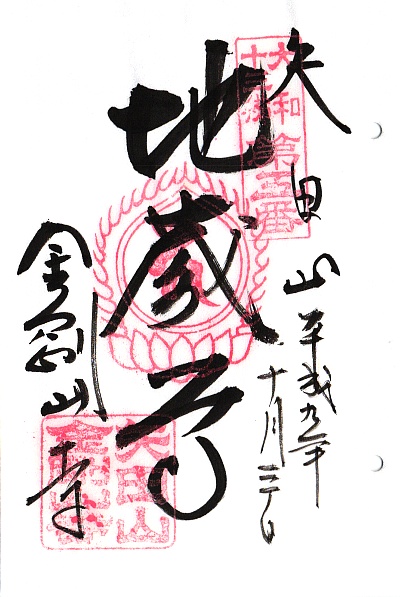 大和
十三佛
第五番
矢田山
平成九年
十月三日
地蔵尊
金剛山寺
矢田山
金剛山寺